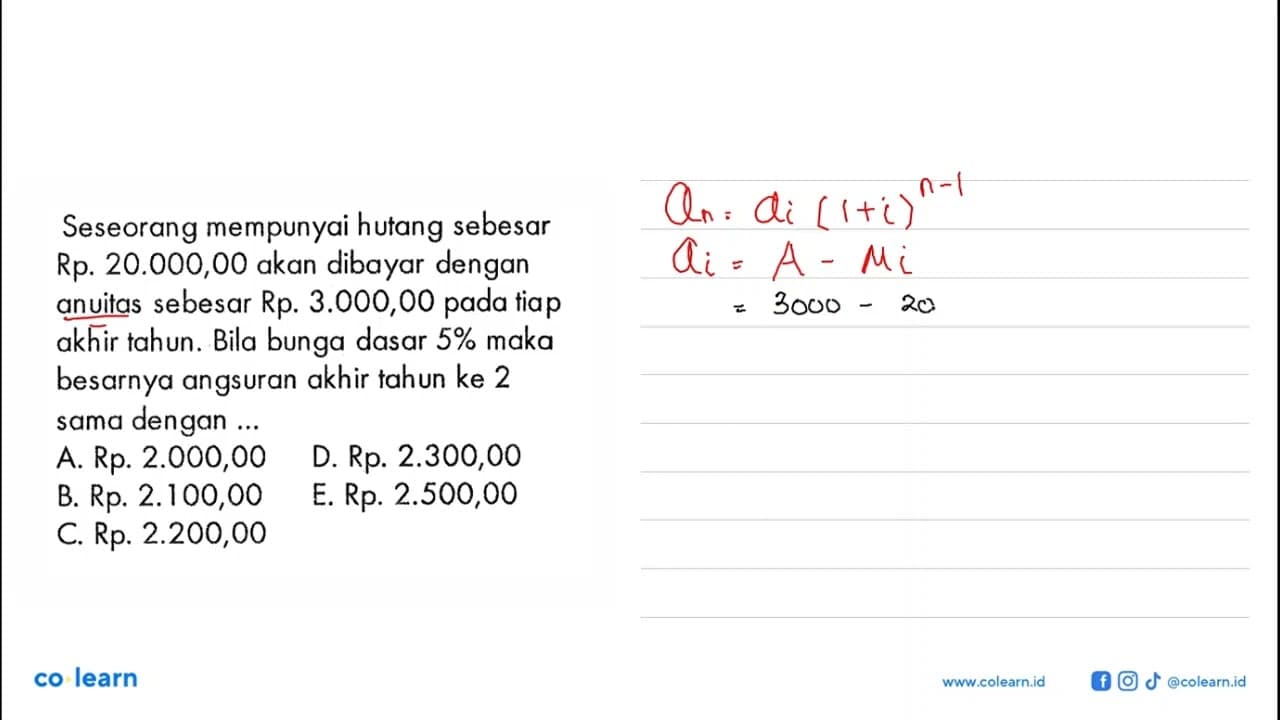 Seseorang mempunyai hutang sebesar
Rp. 20.000,00 akan dibayar dengan
anuitas sebesar Rp. 3.000,00 pada tiap
akhir tahun. Bila bunga dasar 5% maka
besarnya angsuran akhir tahun ke 2
sama dengan ...
A. Rp. 2.000,00 D. Rp. 2.300,00
B. Rp. 2.100,00 E. Rp. 2.500,00
C. Rp. 2.200,00
an = ai (1+i)^n-1
ai = A - Mi
= 3000 - 20
co learn
www.colearn.id
@colearn.id